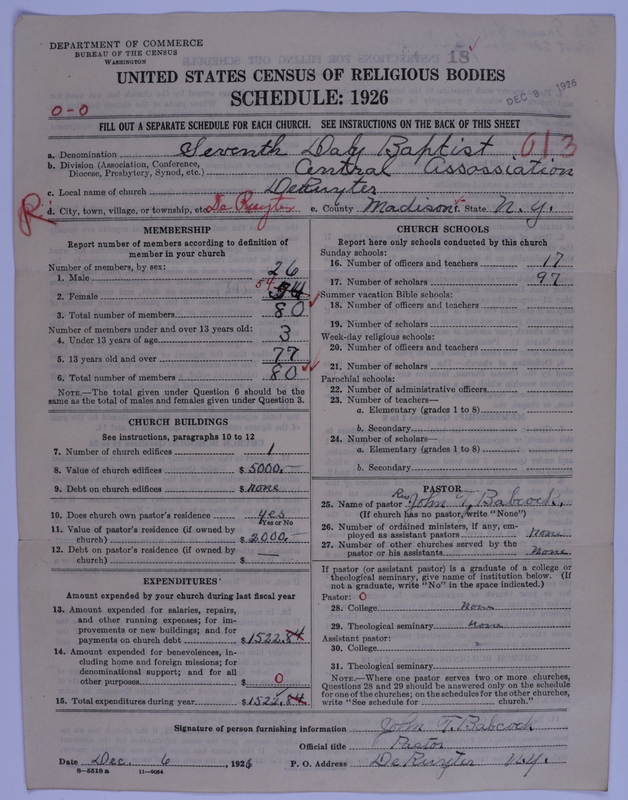 DEPARTMENT OF COMMERCE
BUREAU OF THE CENSUS
WASHINGTON
18
UNITED STATES CENSUS OF RELIGIOUS BODIES
SCHEDULE: 1926
DEC 8 1926
0-0
FILL OUT A SEPARATE SCHEDULE FOR EACH CHURCH. SEE INSTRUCTIONS ON THE BACK OF THIS SHEET
a. Denomination Seventh Day Baptist 013
b. Division (Association, Conference, Diocese, Presbytery, Synod, etc.) Central Assosiation
c. Local name of church DeRuyter
R d. City, town, village, or township, etc. De Ruyter e. County Madison f. State N.Y.
MEMBERSHIP
Report number of members according to definition of
member in your church
Number of members, by sex:
1. Male 26
2. Female 54 54
3. Total number of members 80
Number of members under and over 13 years old:
4. Under 13 years of age 3
5. 13 years old and over 77
6. Total number of members 80
NOTE.—The total given under Question 6 should be the
same as the total of males and females given under Question 3.
CHURCH BUILDINGS
See instructions, paragraphs 10 to 12
7. Number of church edifices 1
8. Value of church edifices $ 5000.—
9. Debt on church edifices $ None
10. Does church own pastor's residence yes
Yes or No
11. Value of pastor's residence (if owned by
church) $ 2000.—
12. Debt on pastor's residence (if owned by
church) $ —
EXPENDITURES
Amount expended by your church during last fiscal year
13. Amount expended for salaries, repairs,
and other running expenses; for im-
provements or new buildings; and for
payments on church debt $1522.84
14. Amount expended for benevolences, in-
cluding home and foreign missions; for
denominational support; and for all
other purposes $ 0
15. Total expenditures during year $1522.84
CHURCH SCHOOLS
Report here only schools conducted by this church
Sunday schools:
16. Number of officers and teachers 17
17. Number of scholars 97
Summer vacation Bible schools:
18. Number of officers and teachers
19. Number of scholars
Week-day religious schools:
20. Number of officers and teachers
21. Number of scholars
Parochial schools:
22. Number of administrative officers
23. Number of teachers—
a. Elementary (grades 1 to 8)
b. Secondary
24. Number of scholars—
a. Elementary (grades 1 to 8)
b. Secondary
PASTOR
25. Name of pastor Rev John T. Babcock.
(If church has no pastor, write "None")
26. Number of ordained ministers, if any, em-
ployed as assistant pastors None
27. Number of other churches served by the
pastor or his assistants None
If pastor (or assistant pastor) is a graduate of a college or
theological seminary, give name of institution below. (If
not a graduate, write "No" in the space indicated.)
Pastor: 0
28. College None
29. Theological seminary None
Assistant pastor:
30. College
31. Theological seminary
NOTE.—Where one pastor serves two or more churches,
Questions 28 and 29 should be answered only on the schedule
for one of the churches; on the schedules for the other churches,
write "See schedule for church."
Signature of person furnishing information John T. Babcock
Official title Pastor
Date Dec. 6, 1926 P. O. Address De Ruyter N.Y.
8-5518a 11-9054